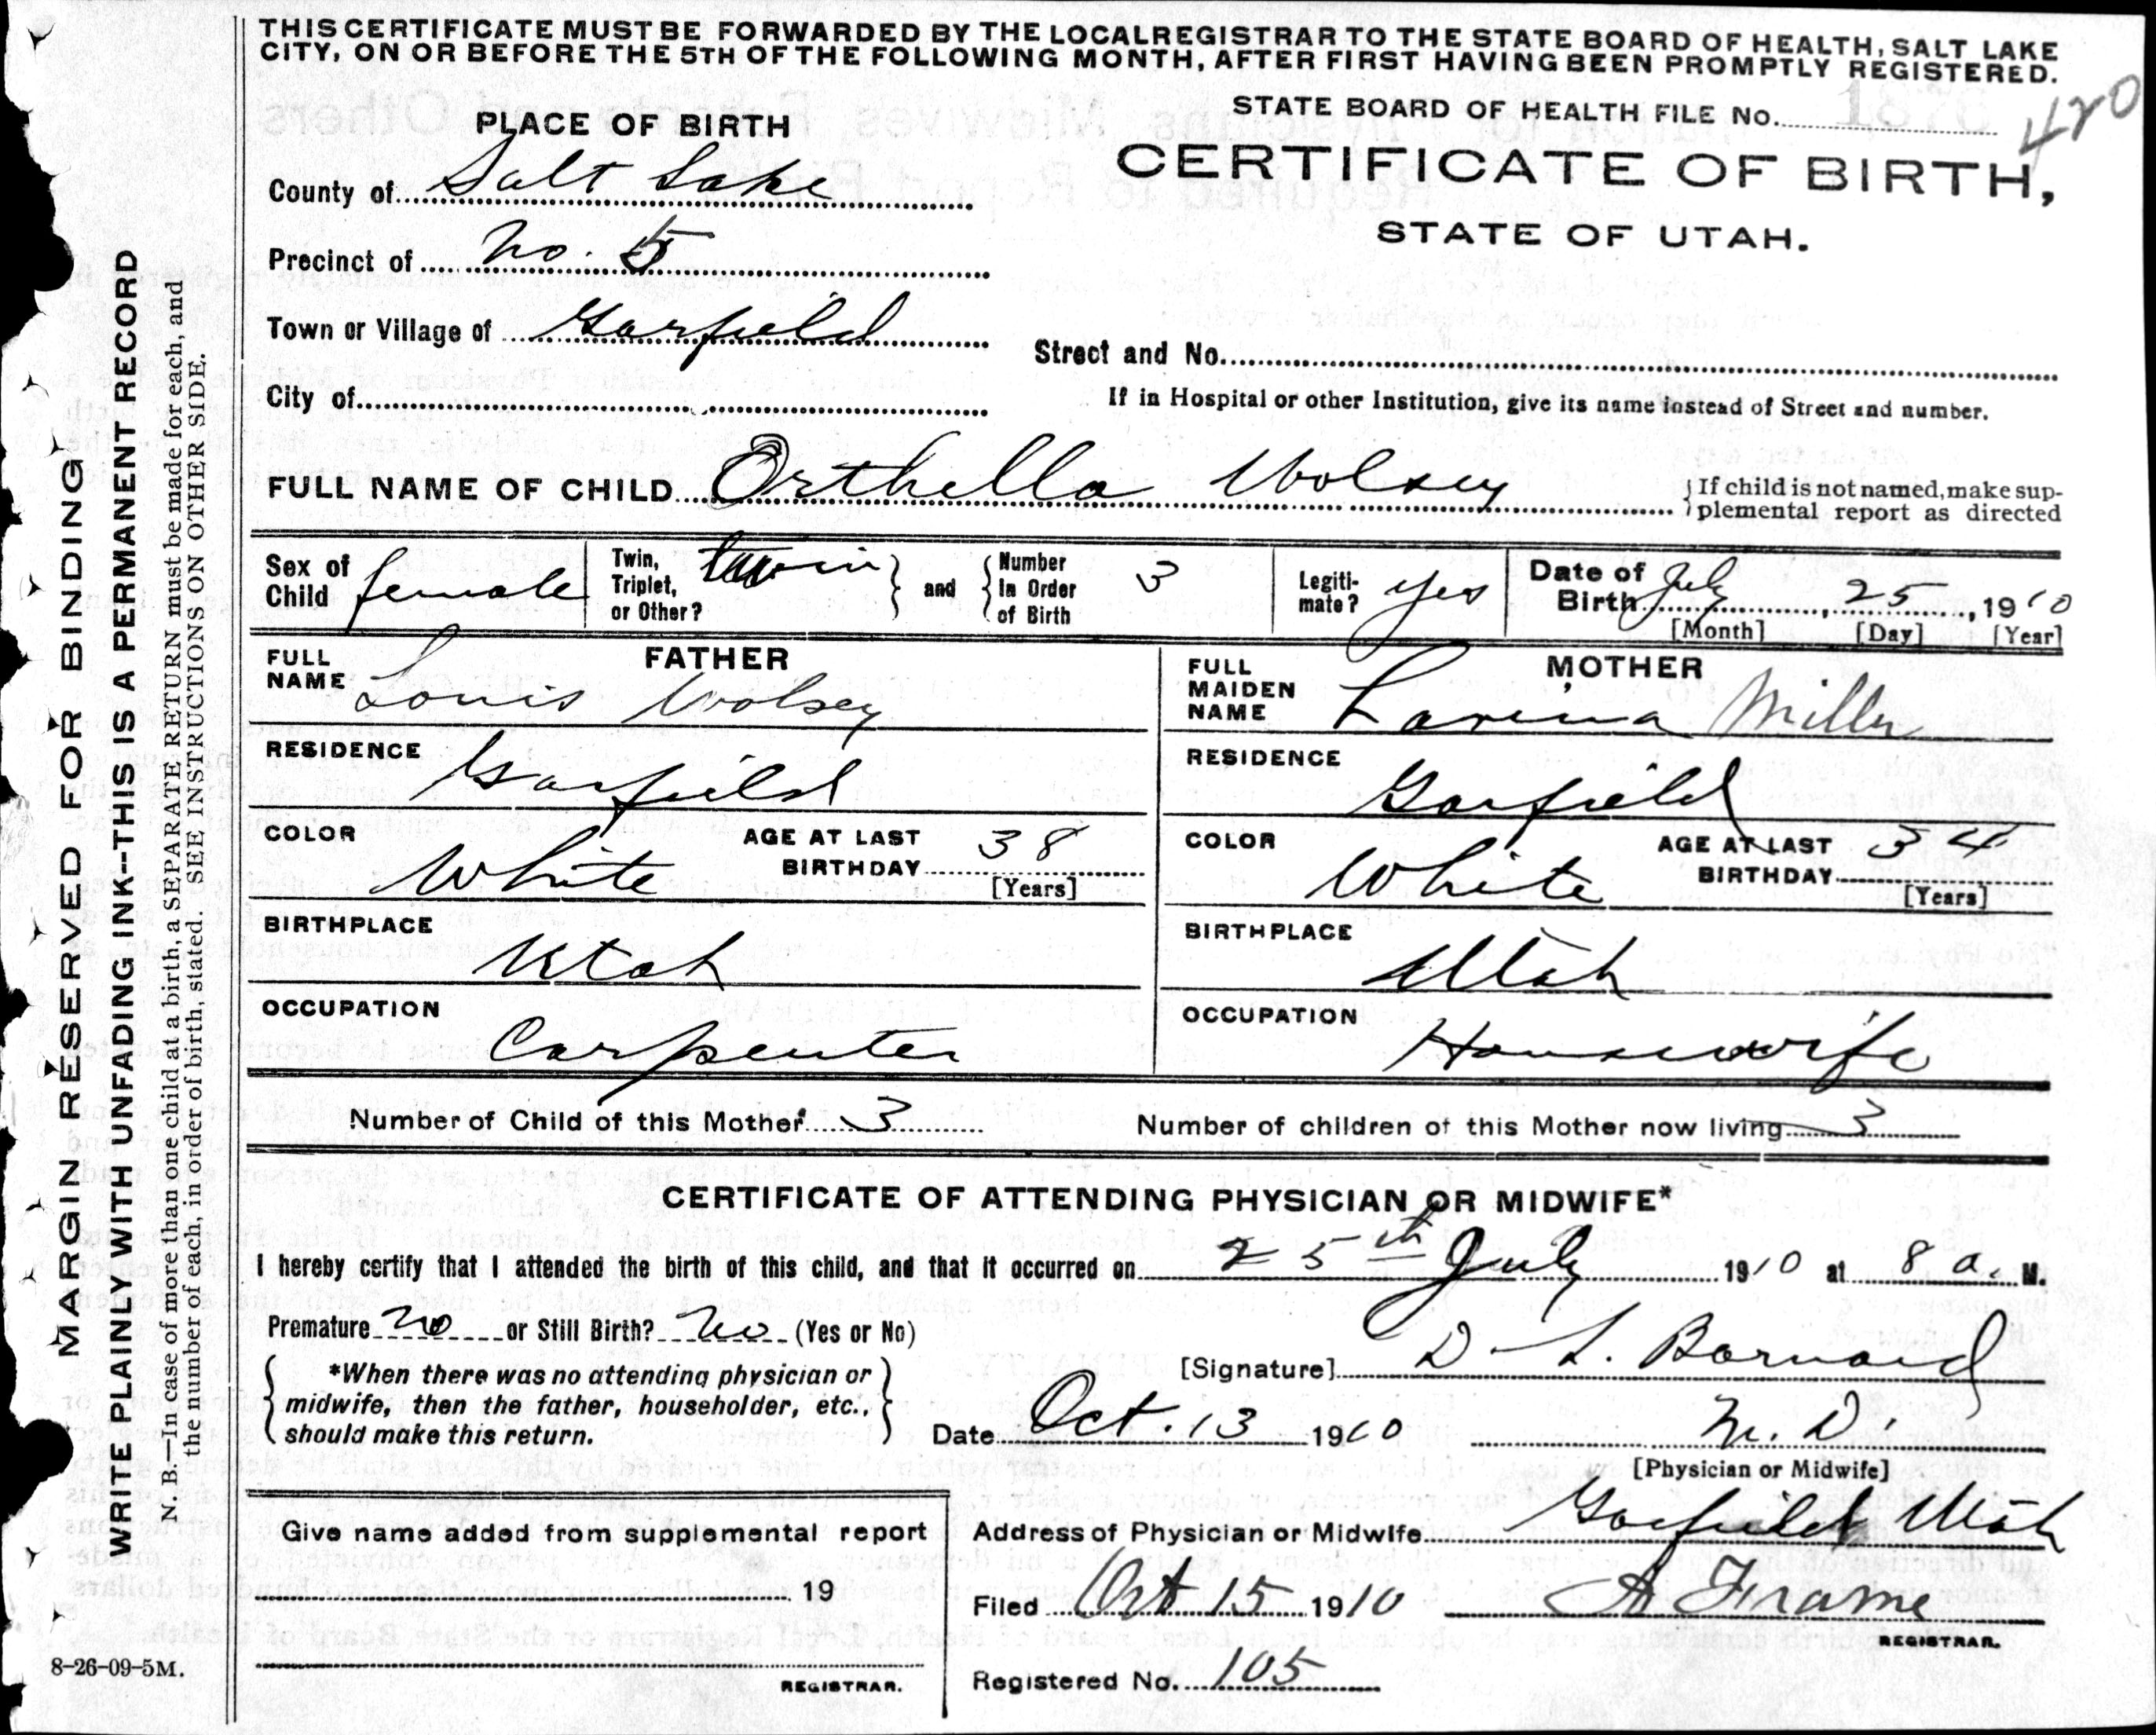 THIS CERTIFICATE MUST BE FORWARDED BY THE LOCAL REGISTRAR TO THE STATE BOARD OF HEALTH, SALT LAKE
CITY, ON OR BEFORE THE 5TH OF THE FOLLOWING MONTH, AFTER FIRST HAVING BEEN PROMPTLY REGISTERED.
STATE BOARD OF HEALTH FILE No. 420
PLACE OF BIRTH
CERTIFICATE OF BIRTH,
STATE OF UTAH.
County of Salt Lake
Precinct of No. 5
Town or Village of Garfield
Street and No.
City of
If in Hospital or other Institution, give its name instead of Street and number.
FULL NAME OF CHILD Orthella Wolsey
If child is not named, make sup-
plemental report as directed
Sex of Child female
Twin, Triplet, or Other? twin
and Number In Order of Birth 3
Legiti-mate? yes
Date of Birth July, 25, 1910
[Month] [Day] [Year]
FATHER
FULL NAME Louis Wolsey
RESIDENCE Garfield
COLOR White
AGE AT LAST BIRTHDAY 38
[Years]
BIRTHPLACE Utah
OCCUPATION Carpenter
MOTHER
FULL MAIDEN NAME Miller
RESIDENCE Garfield
COLOR White
AGE AT LAST BIRTHDAY 34
[Years]
BIRTHPLACE Utah
OCCUPATION Housewife
Number of Child of this Mother 3
Number of children of this Mother now living 3
CERTIFICATE OF ATTENDING PHYSICIAN OR MIDWIFE*
I hereby certify that I attended the birth of this child, and that it occurred on 25th July 1910 at 8 a. M.
Premature no or Still Birth? no (Yes or No)
*When there was no attending physician or
midwife, then the father, householder, etc.,
should make this return.
[Signature] D. L. Barnard
Date Oct. 13 1910
M. D.
[Physician or Midwife]
Give name added from supplemental report
19
REGISTRAR.
Address of Physician or Midwife Garfield Utah
Filed Oct 15 1910 A Frame
REGISTRAR.
Registered No. 105
MARGIN RESERVED FOR BINDING
WRITE PLAINLY WITH UNFADING INK--THIS IS A PERMANENT RECORD
N. B.—In case of more than one child at a birth, a SEPARATE RETURN must be made for each, and
the number of each, in order of birth, stated. SEE INSTRUCTIONS ON OTHER SIDE.
8-26-09-5M.